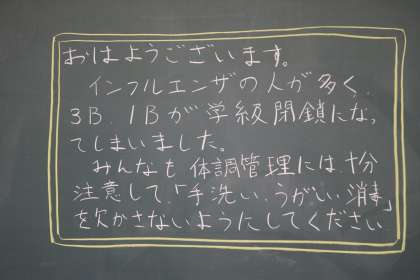 おはようございます。
インフルエンザの人が多く、
3B、1Bが学級閉鎖にな。
てしまいました。
みんなも体調管理には、十分
注意して、「手洗い、うがい、消毒」
を欠かさないようにしてください